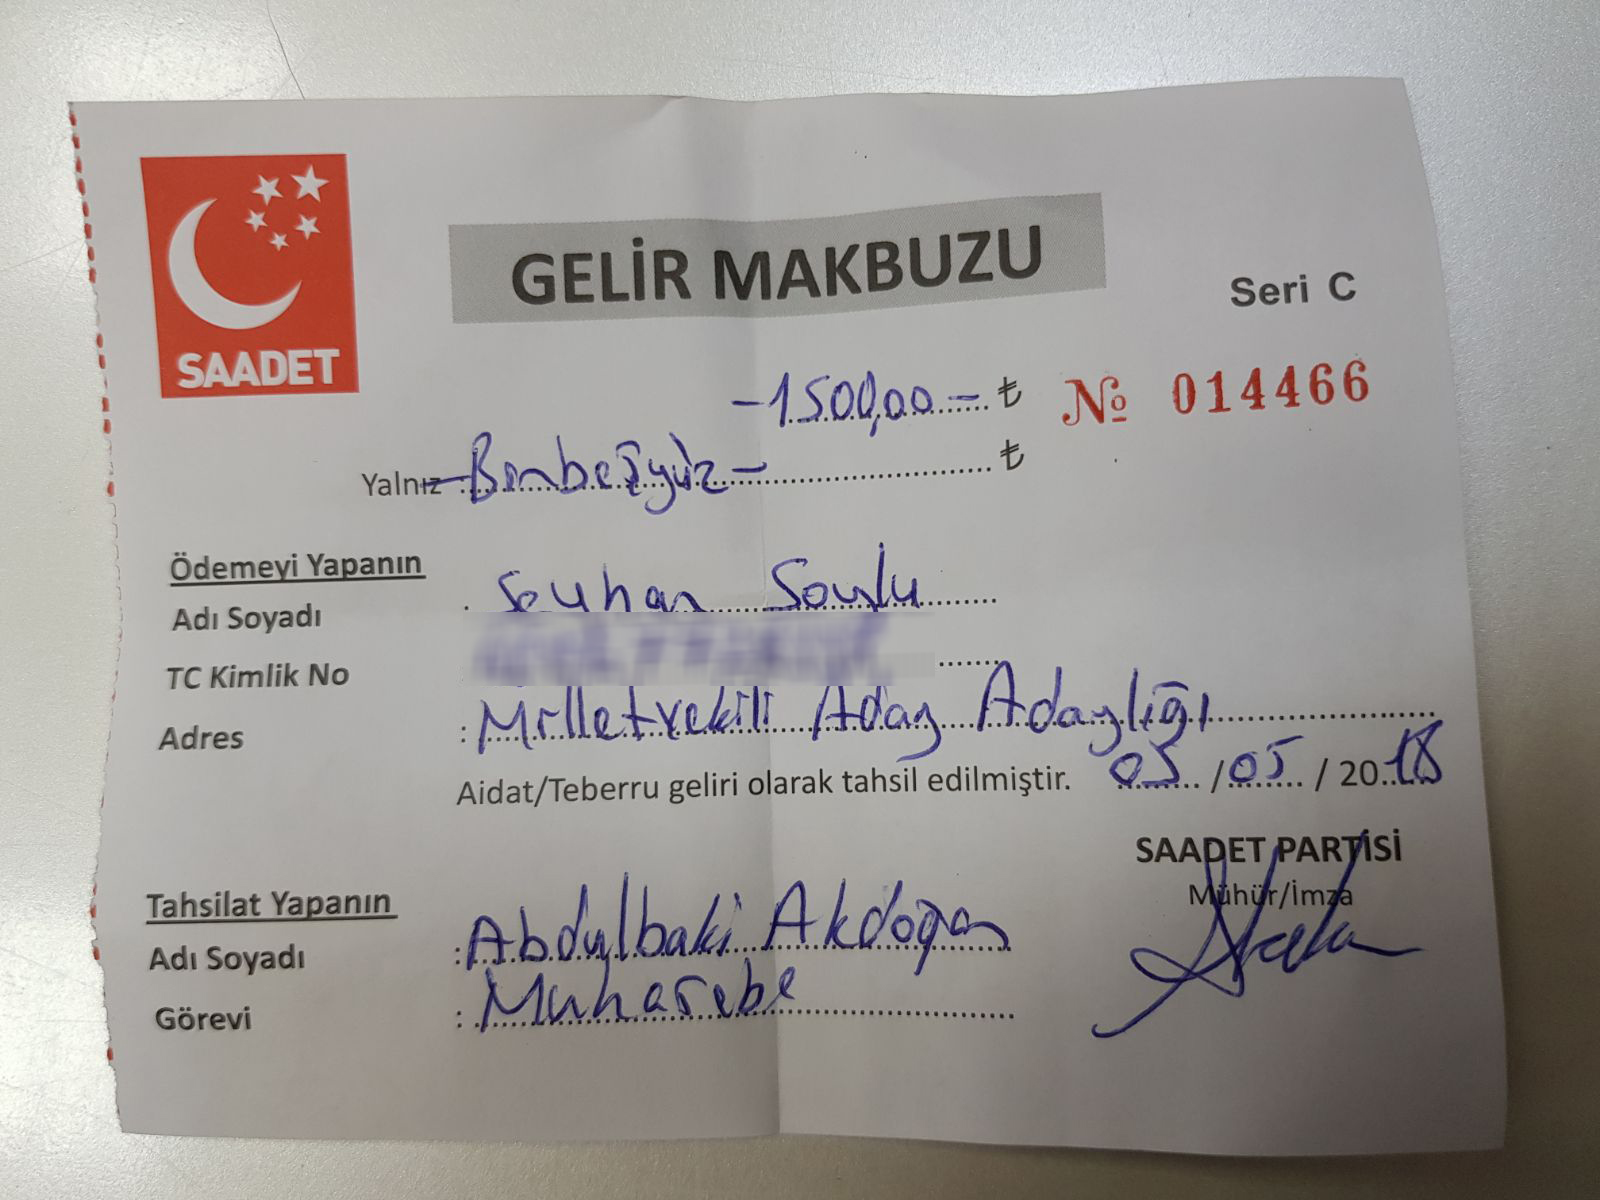 SAADET
GELİR MAKBUZU
Seri C
-1500,00- ₺ № 014466
Yalnız -Binbeşyüz- ₺
Ödemeyi Yapanın
Adı Soyadı : Seyhan Soylu
TC Kimlik No
Adres : Milletvekili Aday Adaylığı
Aidat/Teberru geliri olarak tahsil edilmiştir. 05 / 05 / 2018
SAADET PARTİSİ
Mühür/İmza
Tahsilat Yapanın
Adı Soyadı : Abdulbaki Akdoğan
Görevi : Muhasebe